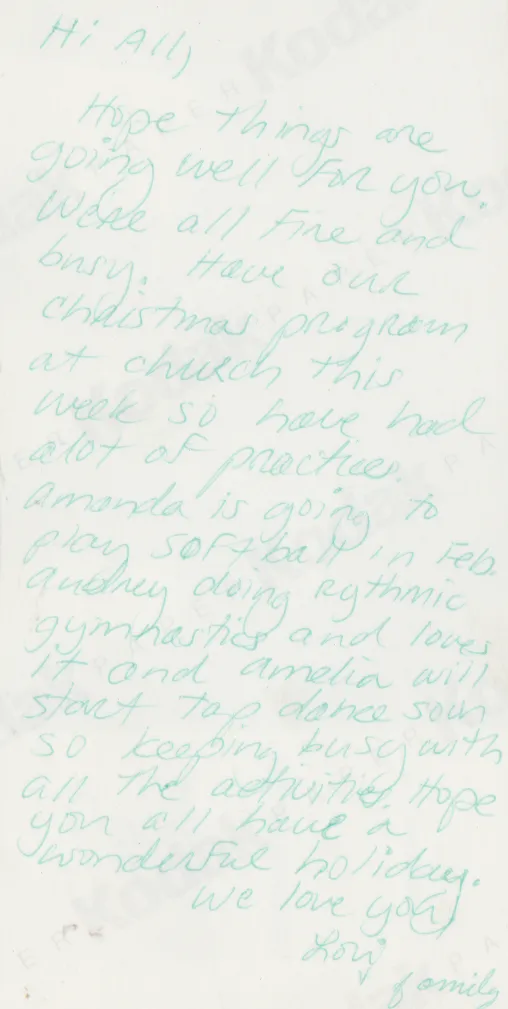 Hi All,
Hope things are
going well for you.
We're all fine and
busy. Have our
christmas program
at church this
week so have had
alot of practices.
Amanda is going to
play softball in Feb.
Audrey doing Rythmic
gymnastics and loves
it and Amelia will
start tap dance soon
so keeping busy with
all the activities. Hope
you all have a
wonderful holiday.
We love you,
Lori
family
Kodak